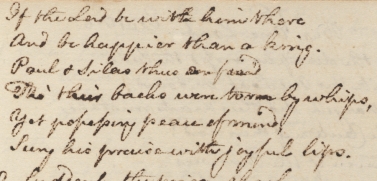 If the Lord be with him there
And be happier than a king.
Paul & Silas thus confined
Tho' their backs were torn by whips,
Yet possessing peace of mind,
Sung his praise with joyful lips.